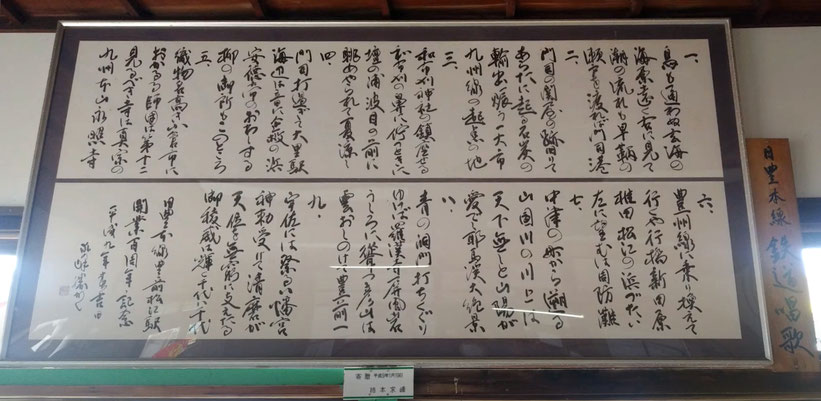 一、
鳥も通わぬ玄海の
海原遠く右に見て
潮の流れも早鞆の
瀬戸を渡れば門司港
二、
門司の関屋の跡旧りて
あらたに起る石炭の
輸出賑う一大市
九州線の起点の地
三、
和布刈神社の鎮座せる
和布刈の鼻に佇つときは
壇の浦波目の前に
眺めやられて夏涼し
四、
門司打過ぎて大里駅
海辺は音に企救の浜
安徳天皇のおわしまする
柳の御所もこのところ
五、
織物名高き小倉市に
おかるる師団は第十二
見るべき寺は真宗の
九州本山永照寺
六、
豊州線に乗り換えて
行西行橋新田原
椎田松江の浜づたい
左にのぞむは周防灘
七、
中津の町から遡る
山国川の川上は
天下無しと山陽が
愛でし耶馬渓大絶景
八、
青の洞門打ちくぐり
ゆけば羅漢寺屏風岩
うしろに聳ゆる彦山は
雲おしのけて豊前一
九、
宇佐では祭る八幡宮
神勅受けて清麿が
天位を無窮に支えたる
御稜威は輝く千代に千代
日豊本線豊前松江駅
開業百周年記念
平成九年
吉日
日豊本線 鉄道唱歌
寄贈